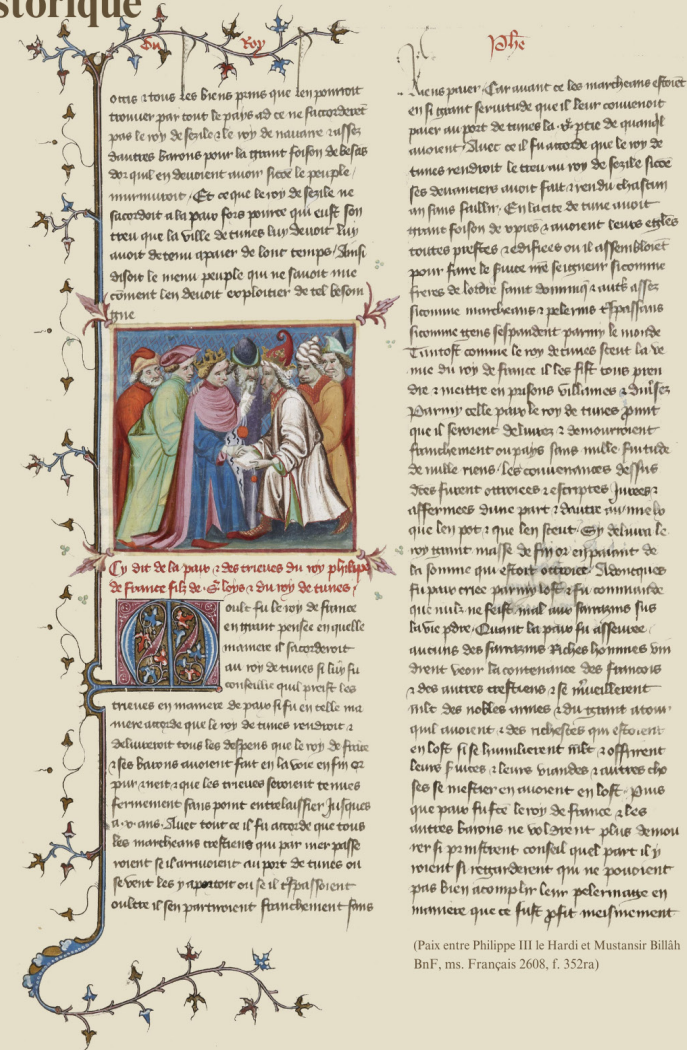 storique
Du Roy
occis & tous les biens prins que len pourroit
trouver par tout le pays ad ce ne saccorderent
pas le roy de sezile & le roy de navarre & assez
dautres barons pour la grant foison de besās
dor quil en devoient avoir sicōe le peuple
murmuroit. Et ce que le roy de sezile ne
sacordoit a la paix fors pource qui eust son
treu que la ville de tunes luy devoit luy
avoit detenu a paier de lonc temps. Ainsi
disoit le menu peuple qui ne savoit mie
cōment len devoit exploitier de tel besoin
gne
Cy dit de la paix & des trieves du roy philippe
de france filz de s. loys & du roy de tunes.
Moult fu le roy de france
en grant pensee en quelle
maniere il sacorderoit
au roy de tunes si luy fu
conseillie quil preist les
trieves en maniere de paix si fu en telle ma
niere accorde que le roy de tunes rendroit &
delivreroit tous les despens que le roy de frāce
& ses barons avoient fait en la voie en fin or
pur & net & que les trieves seroient tenues
fermement sans point entrelaissier jusques
a .x. ans. Avec tout ce il fu accorde que tous
les marcheans crestiens qui par mer passe
roient se il arrivoient au port de tunes ou
se vent les y aportoit ou se il t͛spassoient
oultre il sen partiroient franchement sans
Phē
riens paier. Car avant ce les marcheans estoiēt
en si grant servitude que il leur convenoit
paier au port de tunes la .xͤ. ptie de quanq̄l
avoient. Avec ce il fu accorde que le roy de
tunes rendroit le treu au roy de sezile sicōe
ses devantiers avoit fait & rendu chascun
an sans faillir. En la cite de tune avoit
grant foison de xpiēs & avoient leurs eglēs
toutes prestes & edifiees ou il assembloiēt
pour faire le s͛vice n͛re seigneur sicomme
freres de lordre saint dominiq̄ & autr̄s assez
sicomme marcheans & pelerins t͛spassans
sicomme gens sespandent parmy le monde
Tantost comme le roy de tunes sceut la ve
nue du roy de france il les fist tous pren
dre & mettre en prisons villaines & div͛ses
Parmy celle paix le roy de tunes p͛mist
que il seroient delivrez & demourroient
franchement ou pays sans nulle s͛vitude
de nulle riens. les convenances dessus
dc̄es furent ottroiees & escriptes jurees &
affermees dune part & dautre au mielx
que len pot & que len sceut. Sy delivra le
roy grant masse de fin or en paiant de
la somme qui estoit ottroiee. Adoncques
fu paix criee parmy lost & fu commande
que nulz ne feist mal aux sarrazins sus
la vie pdre. Quant la paix fu asseuree
aucuns des sarrazins riches hommes vin
drent veoir la contenance des francois
& des autres crestiens & se m͛veillerent
mlt̄ des nobles armes & du grant atour
quil avoient & des richesces qui estoient
en lost si se humilierent mlt̄ & offrirent
leurs s͛vices & leurs viandes & autres cho
ses se mestier en avoient en lost. Puis
que paix fu fc̄e le roy de france & les
autres barons ne voldrent plus demou
rer si prinstrent conseil quel part il y
roient si regarderent qui ne povoient
pas bien acomplir leur pelerinage en
maniere que ce fust pfit meismement
(Paix entre Philippe III le Hardi et Mustansir Billâh
BnF, ms. Français 2608, f. 352ra)